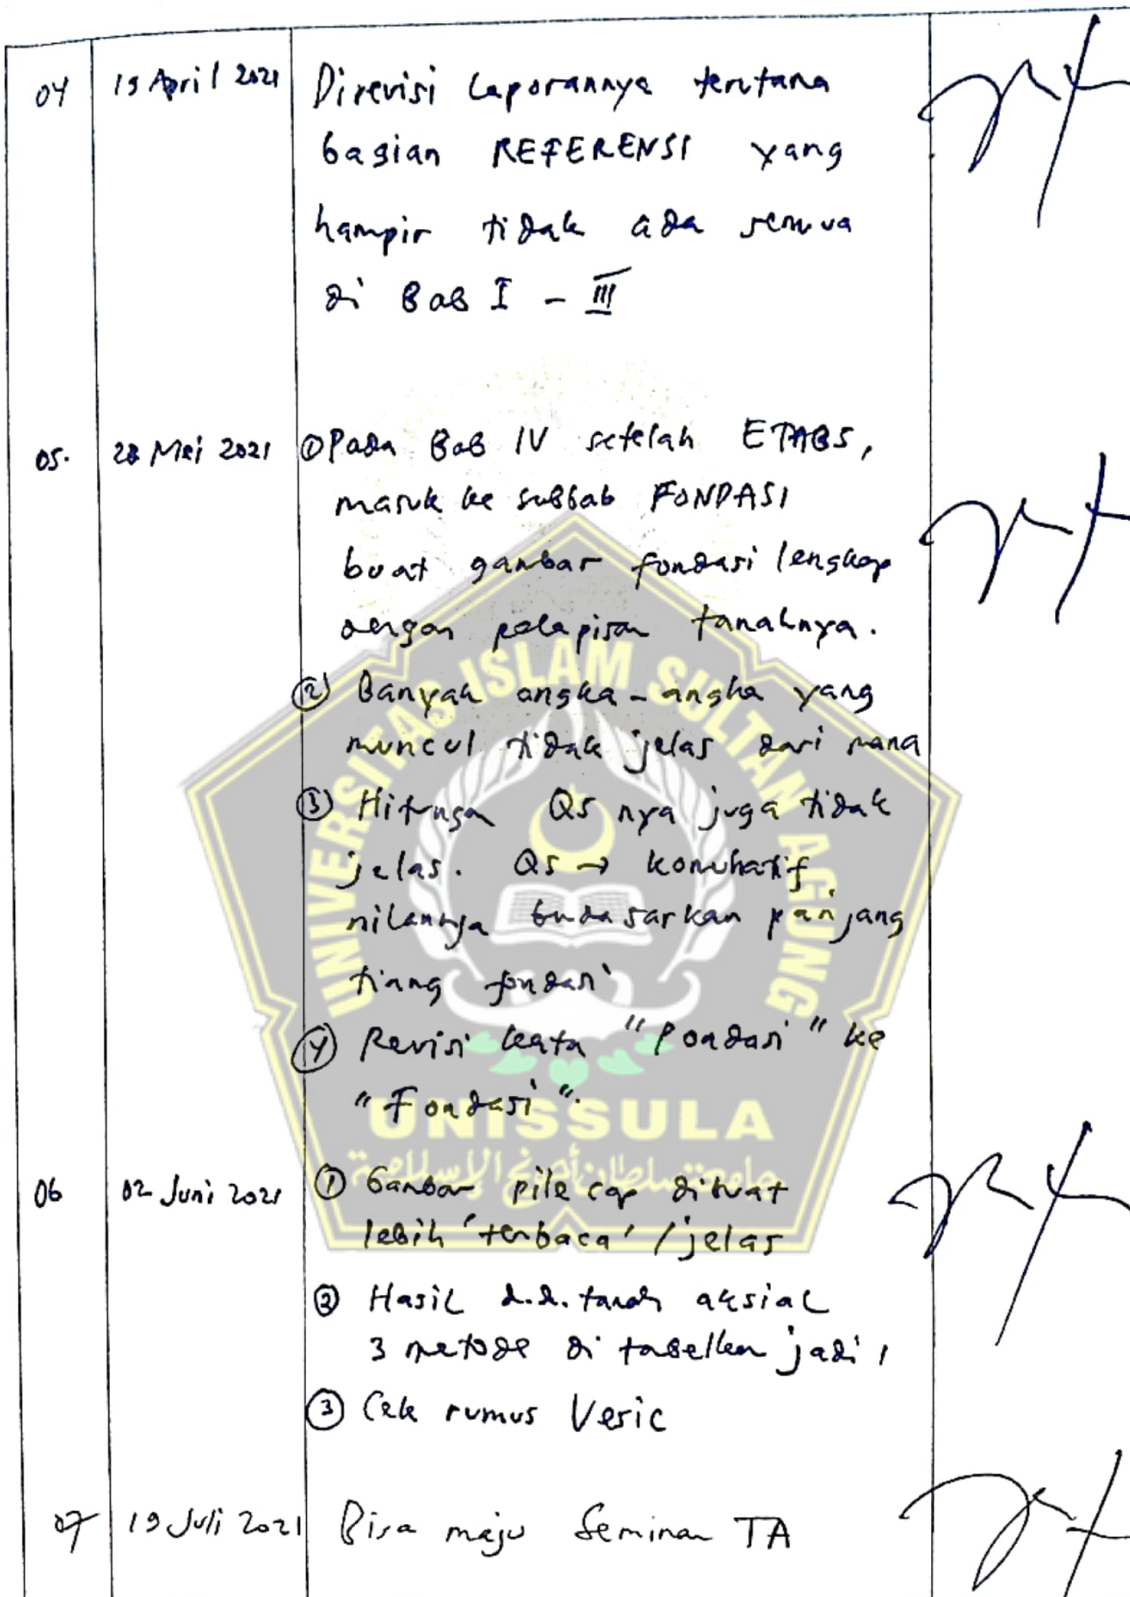 04 15 April 2021 Direvisi Laporannya terutama
bagian REFERENSI yang
hampir tidak ada semua
di Bab I - III
05. 28 Mei 2021 ① Pada Bab IV setelah ETABS,
masuk ke subbab FONDASI
buat gambar fondasi lengkap
dengan pelapisan tanahnya.
② Banyak angka-angka yang
muncul tidak jelas dari mana
③ Hitungan QS nya juga tidak
jelas. QS → komulatif
nilainya berdasarkan panjang
tiang fondasi
④ Revisi kata "Pondasi" ke
"Fondasi".
06 02 Juni 2021 ① Gambar pile cap dibuat
lebih 'terbaca' / jelas
② Hasil d.d. tanah aksial
3 metode di tabelkan jadi 1
③ Cek rumus Vesic
07 19 Juli 2021 Bisa maju Seminar TA
UNIVERSITAS ISLAM SULTAN AGUNG
UNISSULA
جامعة سلطان أجونج الإسلامية